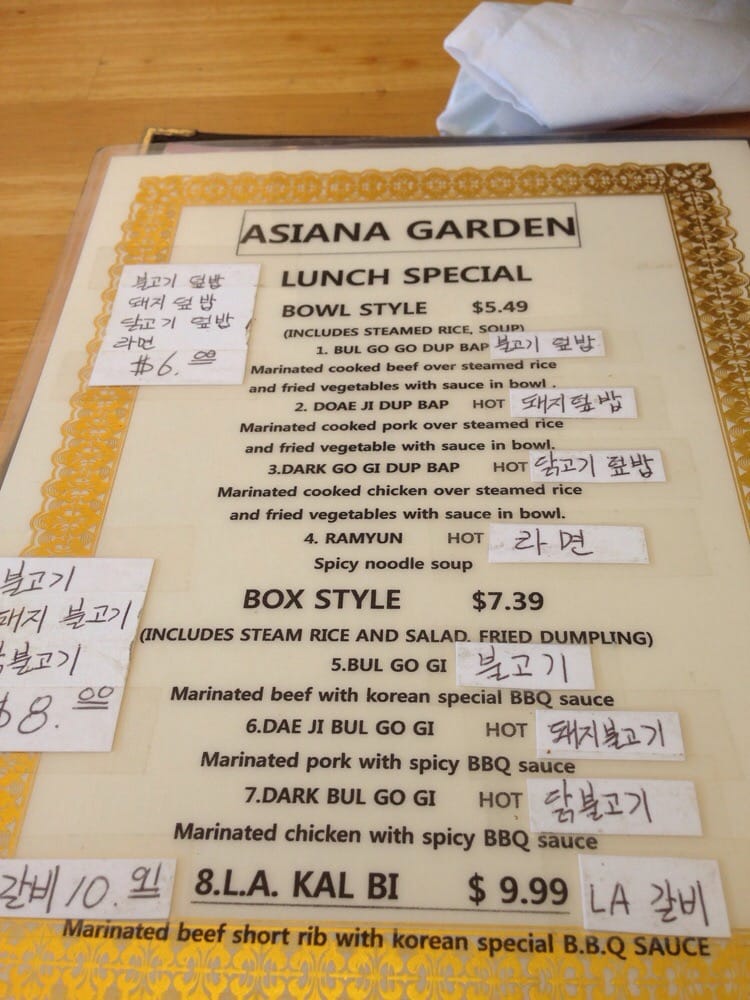 ASIANA GARDEN
LUNCH SPECIAL
불고기 덮밥
돼지 덮밥
닭고기 덮밥
라면
$6.00
BOWL STYLE $5.49
(INCLUDES STEAMED RICE, SOUP)
1. BUL GO GO DUP BAP 불고기 덮밥
Marinated cooked beef over steamed rice
and fried vegetables with sauce in bowl .
2. DOAE JI DUP BAP HOT 돼지덮밥
Marinated cooked pork over steamed rice
and fried vegetable with sauce in bowl.
3.DARK GO GI DUP BAP HOT 닭고기 덮밥
Marinated cooked chicken over steamed rice
and fried vegetables with sauce in bowl.
4. RAMYUN HOT 라면
Spicy noodle soup
불고기
돼지 불고기
닭불고기
$8.00
BOX STYLE $7.39
(INCLUDES STEAM RICE AND SALAD. FRIED DUMPLING)
5.BUL GO GI 불고기
Marinated beef with korean special BBQ sauce
6.DAE JI BUL GO GI HOT 돼지불고기
Marinated pork with spicy BBQ sauce
7.DARK BUL GO GI HOT 닭불고기
Marinated chicken with spicy BBQ sauce
갈비 10.91 8.L.A. KAL BI $ 9.99 LA 갈비
Marinated beef short rib with korean special B.B.Q SAUCE